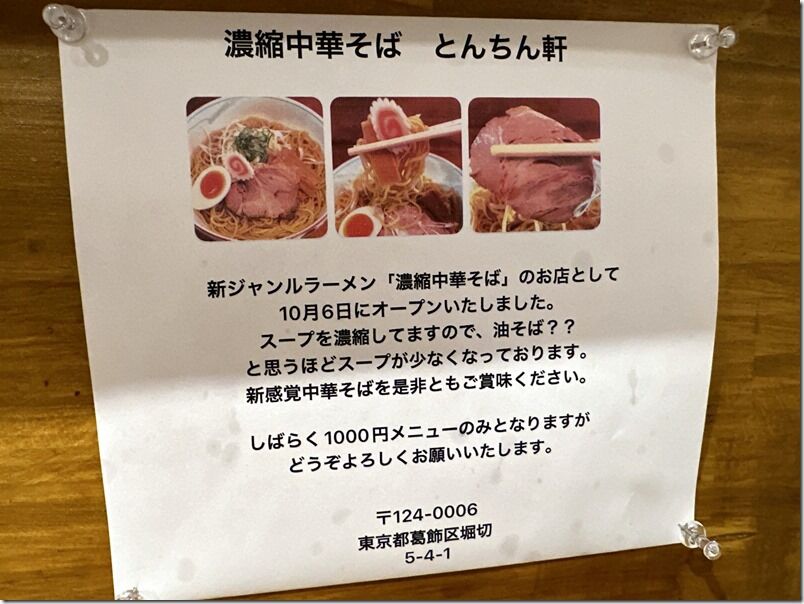 濃縮中華そば　とんちん軒
新ジャンルラーメン「濃縮中華そば」のお店として
10月6日にオープンいたしました。
スープを濃縮してますので、油そば？？
と思うほどスープが少なくなっております。
新感覚中華そばを是非ともご賞味ください。
しばらく1000円メニューのみとなりますが
どうぞよろしくお願いいたします。
〒124-0006
東京都葛飾区堀切
5-4-1